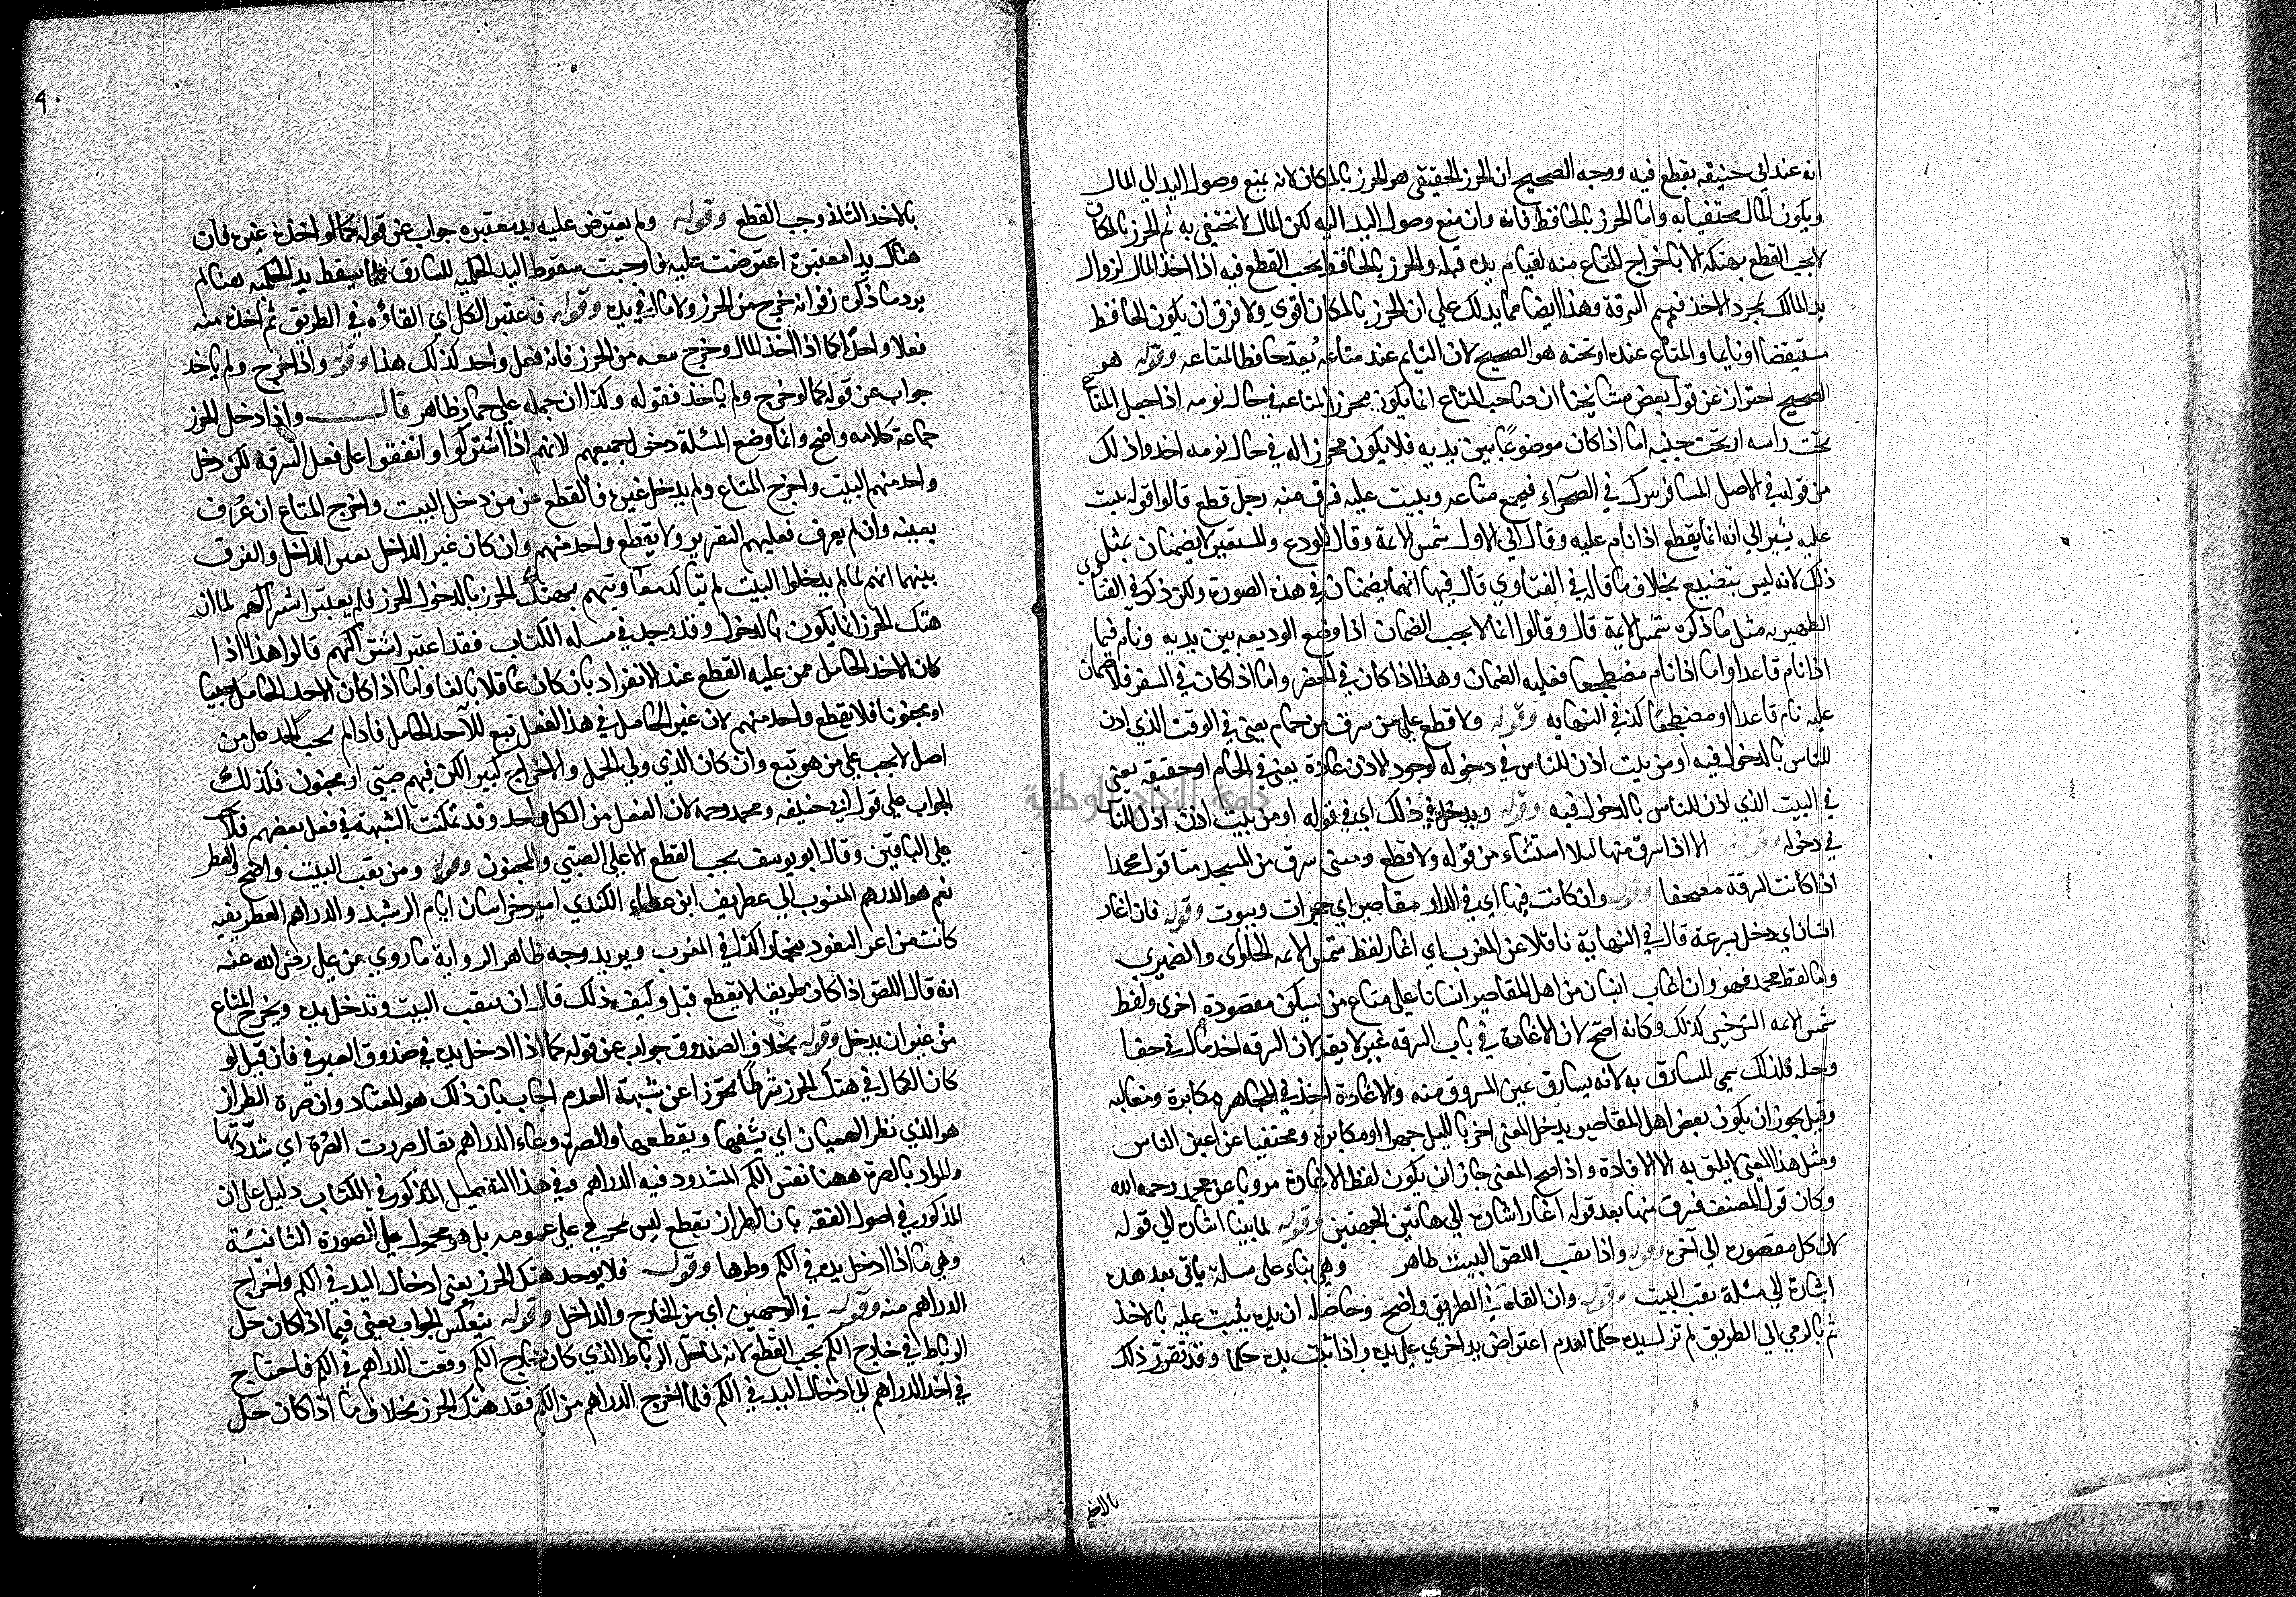 انه عند ابي حنيفه يقطع فيه ووجه الصحيح ان الحرز الحقيقي هو الحرز بالمكان لانه يمنع وصول اليد الي المال
ويكون المال مختفيا به واما الحرز بالحافظ فانه وان منع وصول اليد اليه لكن المال لا يختفي به ثم الحرز بالمكان
لا يجب القطع بهتكه الا باخراج المتاع منه لقيام يده قبله والحرز بالحافظ يجب القطع فيه اذا اخذ المال لزوال
يد المالك بمجرد الاخذ فيتم السرقة وهذا ايضا مما يدلك علي ان الحرز بالمكان اقوي ولا فرق ان يكون الحافظ
مستيقضا او نايما والمتاع عنده او تحته هو الصحيح لان النايم عند متاعه يعد حافظا لمتاعه وقوله هو
الصحيح احتراز عن قول بعض مشايخنا ان صاحب المتاع انما يكون محرزا لمتاعه في حال نومه اذا جعل المتاع
تحت راسه او تحت جنبه اما اذا كان موضوعًا بين يديه فلا يكون محرزا له في حال نومه اخذوا ذلك
من قوله في الاصل المسافر ينزل في الصحراء فيجمع متاعه ويبيت عليه فسرق منه رجل قطع قالوا قوله يبيت
عليه يشير الي انه انما يقطع اذا نام عليه وقال الي الاول شمس الايمة وقال المودع والمستعير لا يضمنان بمثل
ذلك لانه ليس بتضييع بخلاف ما قاله في الفتاوي قال فيها انهما يضمنان في هذه الصورة ولكن ذكر في الفتاوي
الظهيريه مثل ما ذكره شمس الايمة قال وقالوا انما لا يجب الضمان اذا وضع الوديعه بين يديه ونام فيما
اذا نام قاعدا واما اذا نام مضطجعا فعليه الضمان وهذا اذا كان في الحضر واما اذا كان في السفر فلا ضمان
عليه نام قاعدا او مضطجعًا كذا في النهايه وقوله ولا قطع علي من سرق من حمام يعني في الوقت الذي اذن
للناس بالدخول فيه او من بيت اذن للناس في دخوله لوجود الاذن عادة يعني في الحمام او حقيقه يعني
في البيت الذي اذن للناس بالدخول فيه وقوله ويدخل في ذلك اي في قوله او من بيت اذن للناس
في دخوله وقوله الا اذا سرق منها ليلا استثناء من قوله ولا قطع ومعني سرق من المسجد متاقوله محمدا
اذا كانت السرقة مصحفا وقوله وان كانت فيها اي في الدار مقاصير اي حجرات وبيوت وقوله فان اغار
انسان اي دخل بسرعة قال في النهاية ناقلا عن المغرب اي اغار لفظ شمس الايمه الحلواي والضميري
واما لفظ محمد فهو وان اعان انسان من اهل المقاصير انسانا علي متاع من يسكن مقصورة اخري ولفظ
شمس الايمه السرخسي كذلك وكانه اصح لان الاغارة في باب السرقه غير لايقه لان السرقه اخذ مال في خفا
وحيله فلذلك سمي السارق به لانه يسارق عين المسروق منه والاغارة اخذ في المجاهره مكابرة ومغالبه
وقيل يجوز ان يكون بعض اهل المقاصير يدخل المغني اخر بالليل جهرا او مكابرة ومختفيا عن اعين الناس
ومثل هذا المعني لا يليق به الا الافادة واذا صح المعني جاز ان يكون لفظ الاغارة مرويا عن محمد رحمه الله
وكان قول المصنف فسرق منها بعد قوله اغار اشارة الي هاتين الجهتين وقوله لما بينا اشارة الي قوله
لان كل مقصوره الي آخره وقوله واذا نقب اللص البيت ظاهر وهي بناء علي مسلة ياتي بعد هذه
اشارة الي مسئلة نقب البيت وقوله وان القاه في الطريق واضح وحاصله ان يده يثبت عليه بالاخذ
ثم بالرمي الي الطريق لم تزل يده حكما لعدم اعتراض يد اخري علي يده واذا ثبتت يده حكما وقد تقرر ذلك
بالاخذ
٩٠
بالاخذ الثاني وجب القطع وقوله ولم يعترض عليه يد معتبره جواب عن قوله كما لو اخذه غيره فان
هناك يدا معتبرة اعترضت عليه فاوجبت سقوط اليد الحكميه للسارق فلما يسقط يد الحكميه هنا لم
يرد ما ذكره زفر انه خرج من الحرز ولا مال في يده وقوله فاعتبر الكل اي القاؤه في الطريق ثم اخذه منه
فعلا واحدًا كما اذا اخذ المال وخرج معه من الحرز فانه فعل واحد كذلك هذا وقوله واذا خرج ولم ياخذ
جواب عن قوله كما لو خرج ولم ياخذ فقوله وكذا ان حمله علي حمار ظاهر قال واذا دخل الحرز
جماعة كلامه واضح وانما وضع المسئلة دخول جميعهم لانهم اذا اشتركوا واتفقوا علي فعل السرقه لكن دخل
واحد منهم البيت واخرج المتاع ولم يدخل غيره فالقطع عن من دخل البيت واخرج المتاع ان عُرف
بعينه وان لم يعرف فعليهم التعزير ولا يقطع واحد منهم وان كان غير الداخل يعين الداخل والفرق
بينهما انهم لما لم يدخلوا البيت لم يتاكد معاونتهم بهتك الحرز بالدخول الحرز فلم يعتبر اشتراكهم لما ان
هتك الحرز انما يكون بالدخول وقد وجد في مسله الكتاب فقد اعتبر اشتراكهم قالوا هذا اذا
كان الاخذ الحامل ممن عليه القطع عند الانفراد بان كان عاقلا بالغا واما اذا كان الاخذ الحامل صبيا
او مجنونا فلا يقطع واحد منهم لان غير الحامل في هذا الفعل تبع للآخذ الحامل فاذا لم يجب الحد علي من
اصل لا يجب علي من هو تبع وان كان الذي ولي الحمل والاخراج كبيرا لكن فيهم صبّي او مجنون فكذلك
الجواب علي قول ابي حنيفه ومحمد رحمه لان الفعل من الكل واحد وقد تمكنت الشبهة في فعل بعضهم فلا
علي الباقين وقال ابو يوسف يجب القطع الا علي الصبي والمجنون وقوله ومن نقب البيت واضح والغطر
نم هو الدرهم المنسوب الي غطريف ابن عطاء الكندي امير خراسان ايام الرشيد والدراهم الغطريفيه
كانت من اعز النقود ببخارا كذا في المغرب ويريد وجه ظاهر الرواية ما روي عن علي رضي الله عنه
انه قال اللص اذا كان ظريفا لا يقطع قيل وكيف ذلك قال ان ينقب البيت وتدخل يده ويخرج المتاع
من غير ان يدخل وقوله بخلاف الصندوق جواب عن قوله كما اذا ادخل يده في صندوق الصيرفي فان قيل لو
كان الكمال في هتك الحرز شرطا تحرزا عن شبهة العدم اجاب بان ذلك هو المعتاد وان صرة الطرار
هو الذي نظر الهميان اي يشقها ويقطعها والصرة وعاء الدراهم يقال صررت الصُرة اي شددتها
والمراد بالصرة ههنا نفس الكم المشدود فيه الدراهم وفي هذا التفصيل المذكور في الكتاب دليل علي ان
المذكور في اصول الفقه بان الطرار يقطع ليس بمجري علي عمومه بل هو محمول علي الصورة الثانيئة
وهي ما اذا ادخل يده في الكم وطرها وقوله فلا يوجد هتك الحرز يعني ادخال اليد في الكم واخراج
الدراهم منه وقوله في الوجهين اي من الخارج والداخل وقوله ينعكس الجواب يعني فيما اذا كان حل
الرباط في خارج الكم يجب القطع لانه لما حل الرباط الذي كان خارج الكم وقعت الدراهم في الكم فاحتاج
في اخذ الدراهم الي ادخال اليد في الكم فلما اخرج الدراهم من الكم فقد هتك الحرز بخلاف ما اذا كان حل